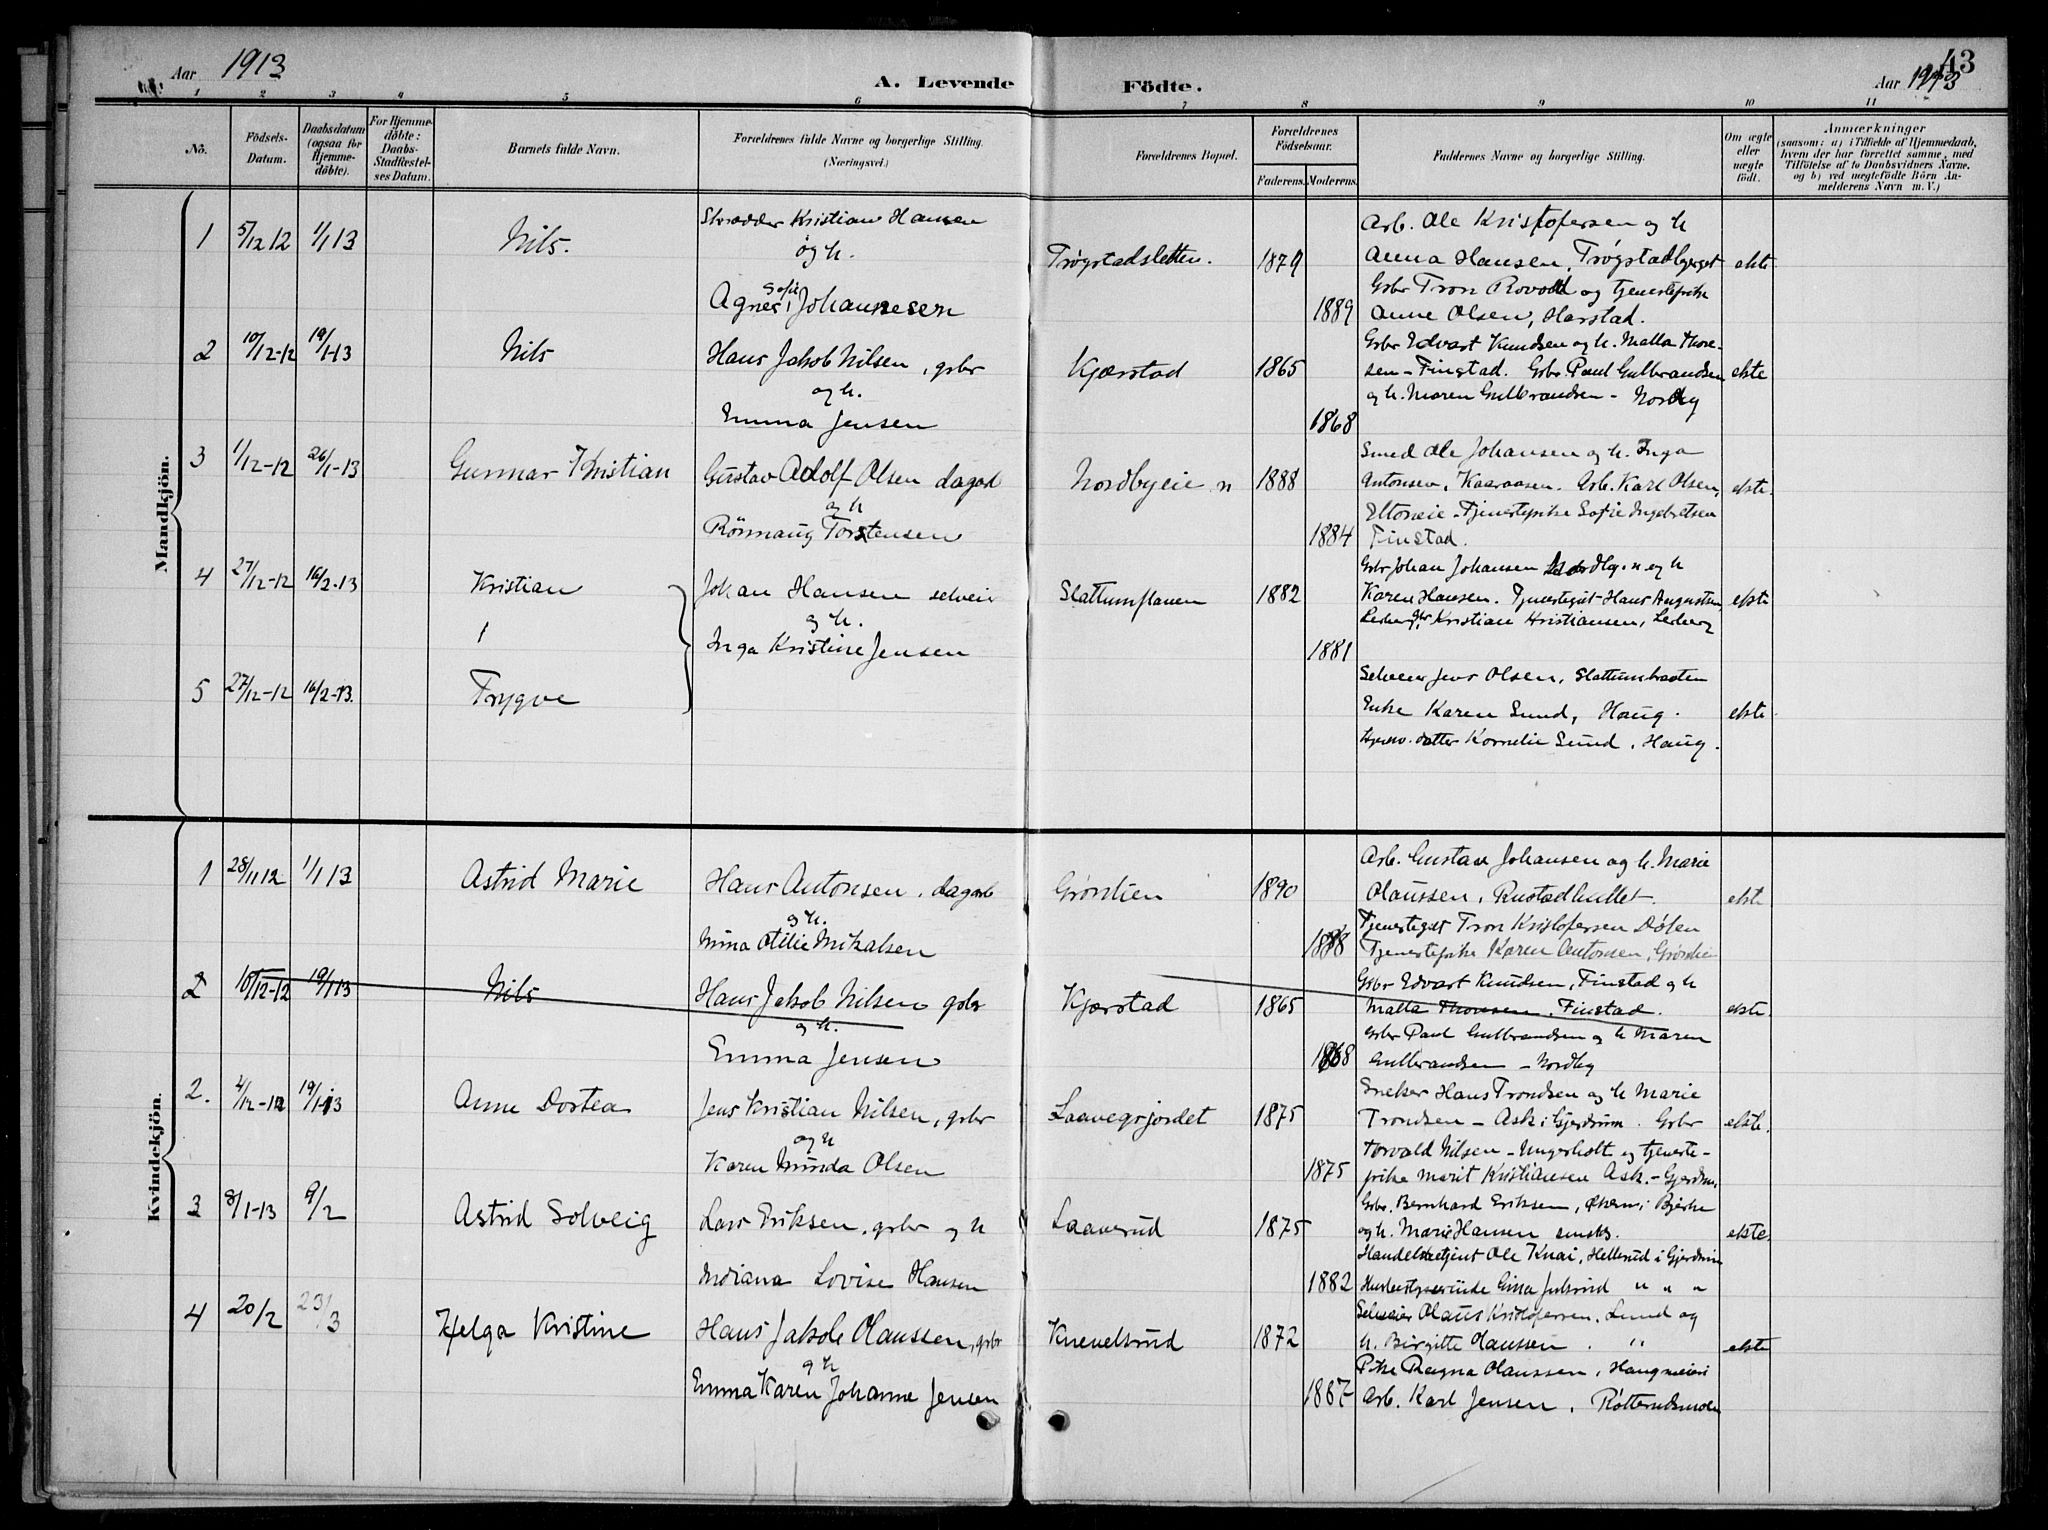 Aar 1913
A. Levende
Födte.
43
Aar 1913
1 2 3 4 5 6 7 8 9 10 11
No.
Födsels-Datum.
Daabsdatum (ogsaa for Hjemmedöbte).
For Hjemmedøbte: Daabs-Stadfæstelses Datum.
Barnets fulde Navn.
Forældrenes fulde Navne og borgerlige Stilling.
(Næringsvei.)
Forældrenes Bopæl.
Forældrenes Födselsaar.
Faderens. Moderens.
Faddernes Navne og borgerlige Stilling.
Om ægte eller uægte födt.
Anmærkninger
(saasom: a) i Tilfælde af Hjemmedaab, hvem der har forrettet samme, med Tilföielse af to Daabsvidners Navne. og b) ved uægtefödte Börn Anmelderens Navn m. V.)
Mandkjön.
1 5/12 12 1/1 13 Nils. Skrædder Kristian Hansen
og h.
Agnes Sofie Johannesen
Trøgstadsletten. 1879 1889
Arb. Ole Kristofersen og h
Anna Hansen, Trøgstadbyerget ekte
Gbr Tron Rovold og tjenestepike
Anne Olsen, Harstad.
2 10/12-12 19/1-13 Nils Hans Jakob Nilsen, gbr
og h.
Emma Jensen
Kjærstad 1865 1868
Gbr Edvart Knudsen og h. Matta Thore-
sen - Finstad. Gbr. Paul Gulbrandsen ekte
og h. Maren Gulbrandsen - Nordby
3 1/12-12 26/1-13 Gunnar Kristian Gustav Adolf Olsen dagarb
og h
Rönnaug Torstensen
Nordbyeie n 1888 1884
Smed Ole Johansen og h. Inga
Antonsen, Kaaraasen. Arb. Karl Olsen, ekte.
Eltoneie - Tjenestepike Sofie Ingebretsen
Finstad.
4 27/12-12 16/2-13 Kristian Johan Hansen selveier
og h.
Inga Kristine Jensen
Slattumflauen 1882 1881
Gbr Johan Johansen Nordby. n og h
Karen Hansen. Tjenestegut Hans Augustsen ekte
Lerberg, Gbr Kristian Kristiansen, Lerberg
5 27/12-12 16/2-13. Trygve
Selveier Jens Olsen, Slattumbraaten
Enke Karen Sund, Haug. ekte
datter Kornelie Sund, Haug.
Kvindekjön.
1 28/11 12 1/1 13 Astrid Marie Hans Antonsen, dagarb
og h.
Mina Otilie Mikalsen
Grönlien 1890 1888
Arb. Gustav Johansen og h. Marie
Olaussen, Rustadhullet. ekte
Tjenestegut Tron Kristofersen Dølen
Tjenestepike Karen Antonsen, Grønlien
2 10/12-12 19/1 13 Nils Hans Jakob Nilsen gbr
og h.
Emma Jensen
Kjærstad 1865 1868
Gbr Edvart Knudsen, Finstad og h
Matta Thoresen, Finstad. ekte.
Gbr Paul Gulbrandsen og h Maren
Gulbrandsen - Nordby
2. 4/12-12 19/1-13 Anne Dortea Jens Kristian Nilsen, gbr
og h
Karen Munda Olsen
Laavegsjordet 1875 1875
Snekker Hans Trondsen og h Marie
Trondsen - Ask i Gjerdrum. Gbr ekte.
Torvald Nilsen - Ungerholt og tjeneste-
pike Marit Kristiansen Ask. - Gjerdrum.
3 8/1-13 9/2 Astrid Solveig Lars Eriksen, gbr og h
Indiana Lovise Hansen
Laaverud 1875 1882
Gbr. Bernhard Eriksen, i Bjerke
og h. Marie Hansen smsts. ekte.
Handelsbetjent Ole Knai, Hellerud i Gjerdrum
Husbestyrerinde Gina Julsrud " " "
4 20/2 23/3 Helga Kristine Hans Jakob Olaussen, gbr
og h
Emma Karen Johanne Jensen
Knevelsrud 1872 1867
Selveier Olaus Kristofersen, Lund og
h. Birgitte Hanssen . " ekte
Pike Ragna Olaussen, Haugmeieri
Arb. Karl Jensen, Röttersudsmoen